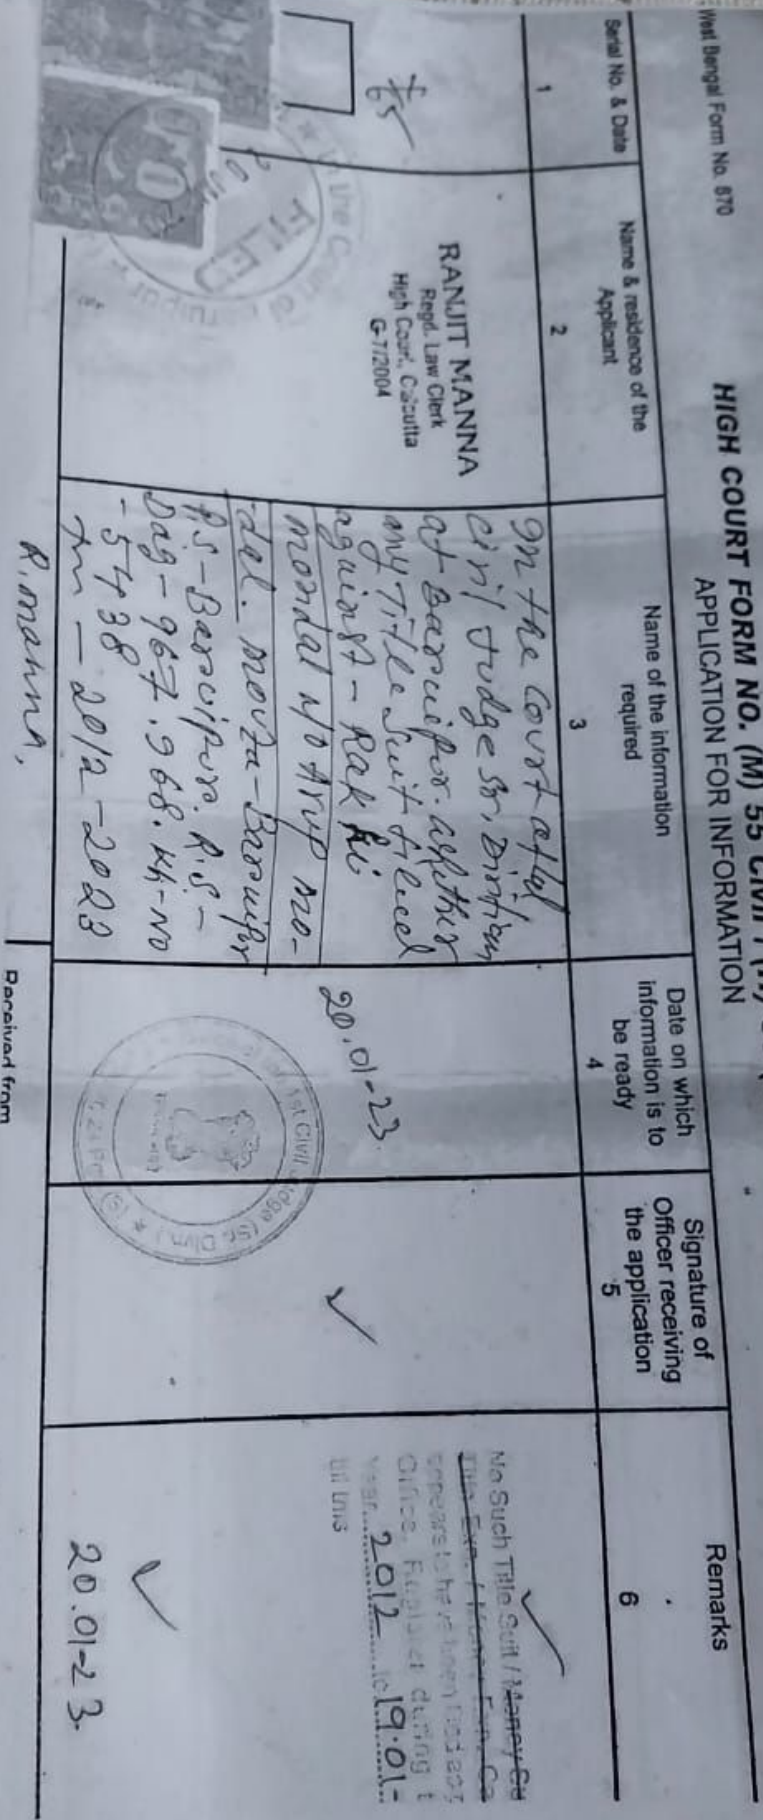 West Bengal Form No. 870
HIGH COURT FORM NO. (M) 55 CIVIL
APPLICATION FOR INFORMATION
Serial No. & Date
Name & residence of the Applicant
Name of the information required
Date on which information is to be ready
Signature of Officer receiving the application
Remarks
1
2
3
4
5
6
RANJIT MANNA
Regd. Law Clerk
High Court, Calcutta
G-7/2004
In the Court of Ld
Civil Judge Sr. Division
at Baruipur.
any Title Suit filed
against - Rakhi
mondal w/o Arup mo-
dal. mouza - Baruipur
P.S - Baruipur. R.S -
Dag - 967. 968. kh-no
- 5438
2012 - 2023
R. manna,
20.01-23.
FILED
In the Court of
1st Civil Judge (Sr. Divn.)
No Such Title Suit / Money Su
Title Exe. / Money Exe. Ca
appears to have been filed as
Office, Register during t
Year....2012....to...19.01-
till this
20.01-23.
Received from